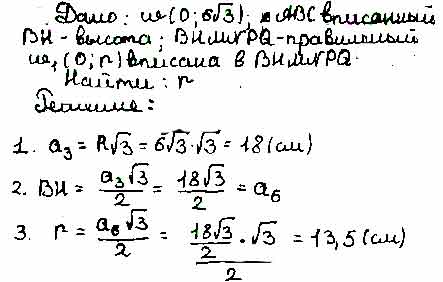 Дано: w(0; 6√3); ABC вписанный
BH - высота; BHMNPQ - правильный
w₁(0; r) вписана в BHMNPQ.
Найти: r
Решение:
1. a₃ = R√3 = 6√3 · √3 = 18 (см)
2. BH = a₃√3/2 = 18√3/2 = a₆
3. r = a₆√3/2 = (18√3/2 · √3)/2 = 13,5 (см)